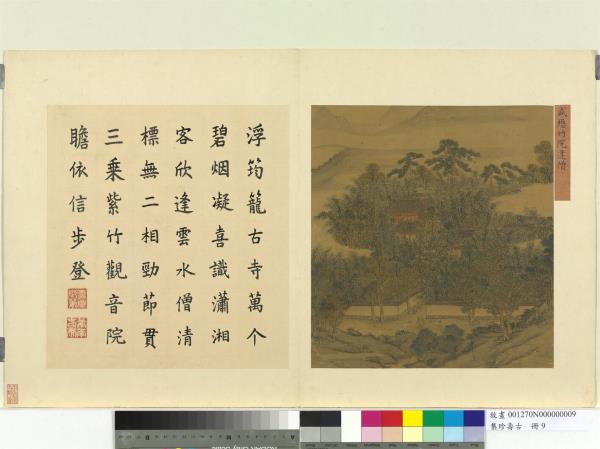 浮筠籠古寺萬个
碧烟凝喜識瀟湘
客欣逢雲水僧清
標無二相勁節貫
三乗紫竹觀音院
瞻依信步登
盛懋竹院逢僧
故畫 001270N000000009
集珍壽古 冊 9